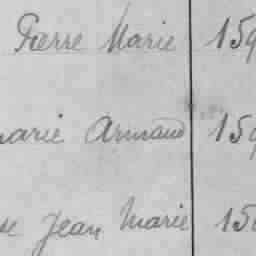 Pierre Marie 159
marie Armand 159
se Jean Marie 15